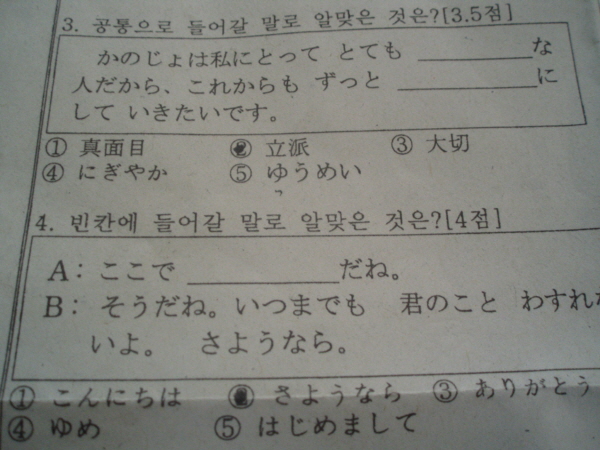 3. 공통으로 들어갈 말로 알맞은 것은?[3.5점]
かのじょは私にとって とても ________な
人だから、これからも ずっと ________に
して いきたいです。
① 真面目 ② 立派 ③ 大切
④ にぎやか ⑤ ゆうめい
4. 빈칸에 들어갈 말로 알맞은 것은?[4점]
A: ここで ________だね。
B: そうだね。いつまでも 君のこと わすれな
いよ。 さようなら。
① こんにちは ② さようなら ③ ありがとう
④ ゆめ ⑤ はじめまして